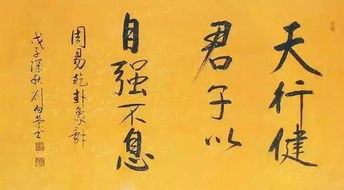 天行健
君子以
自强不息
周易乾卦象辞
戊子深秋刘白荣书